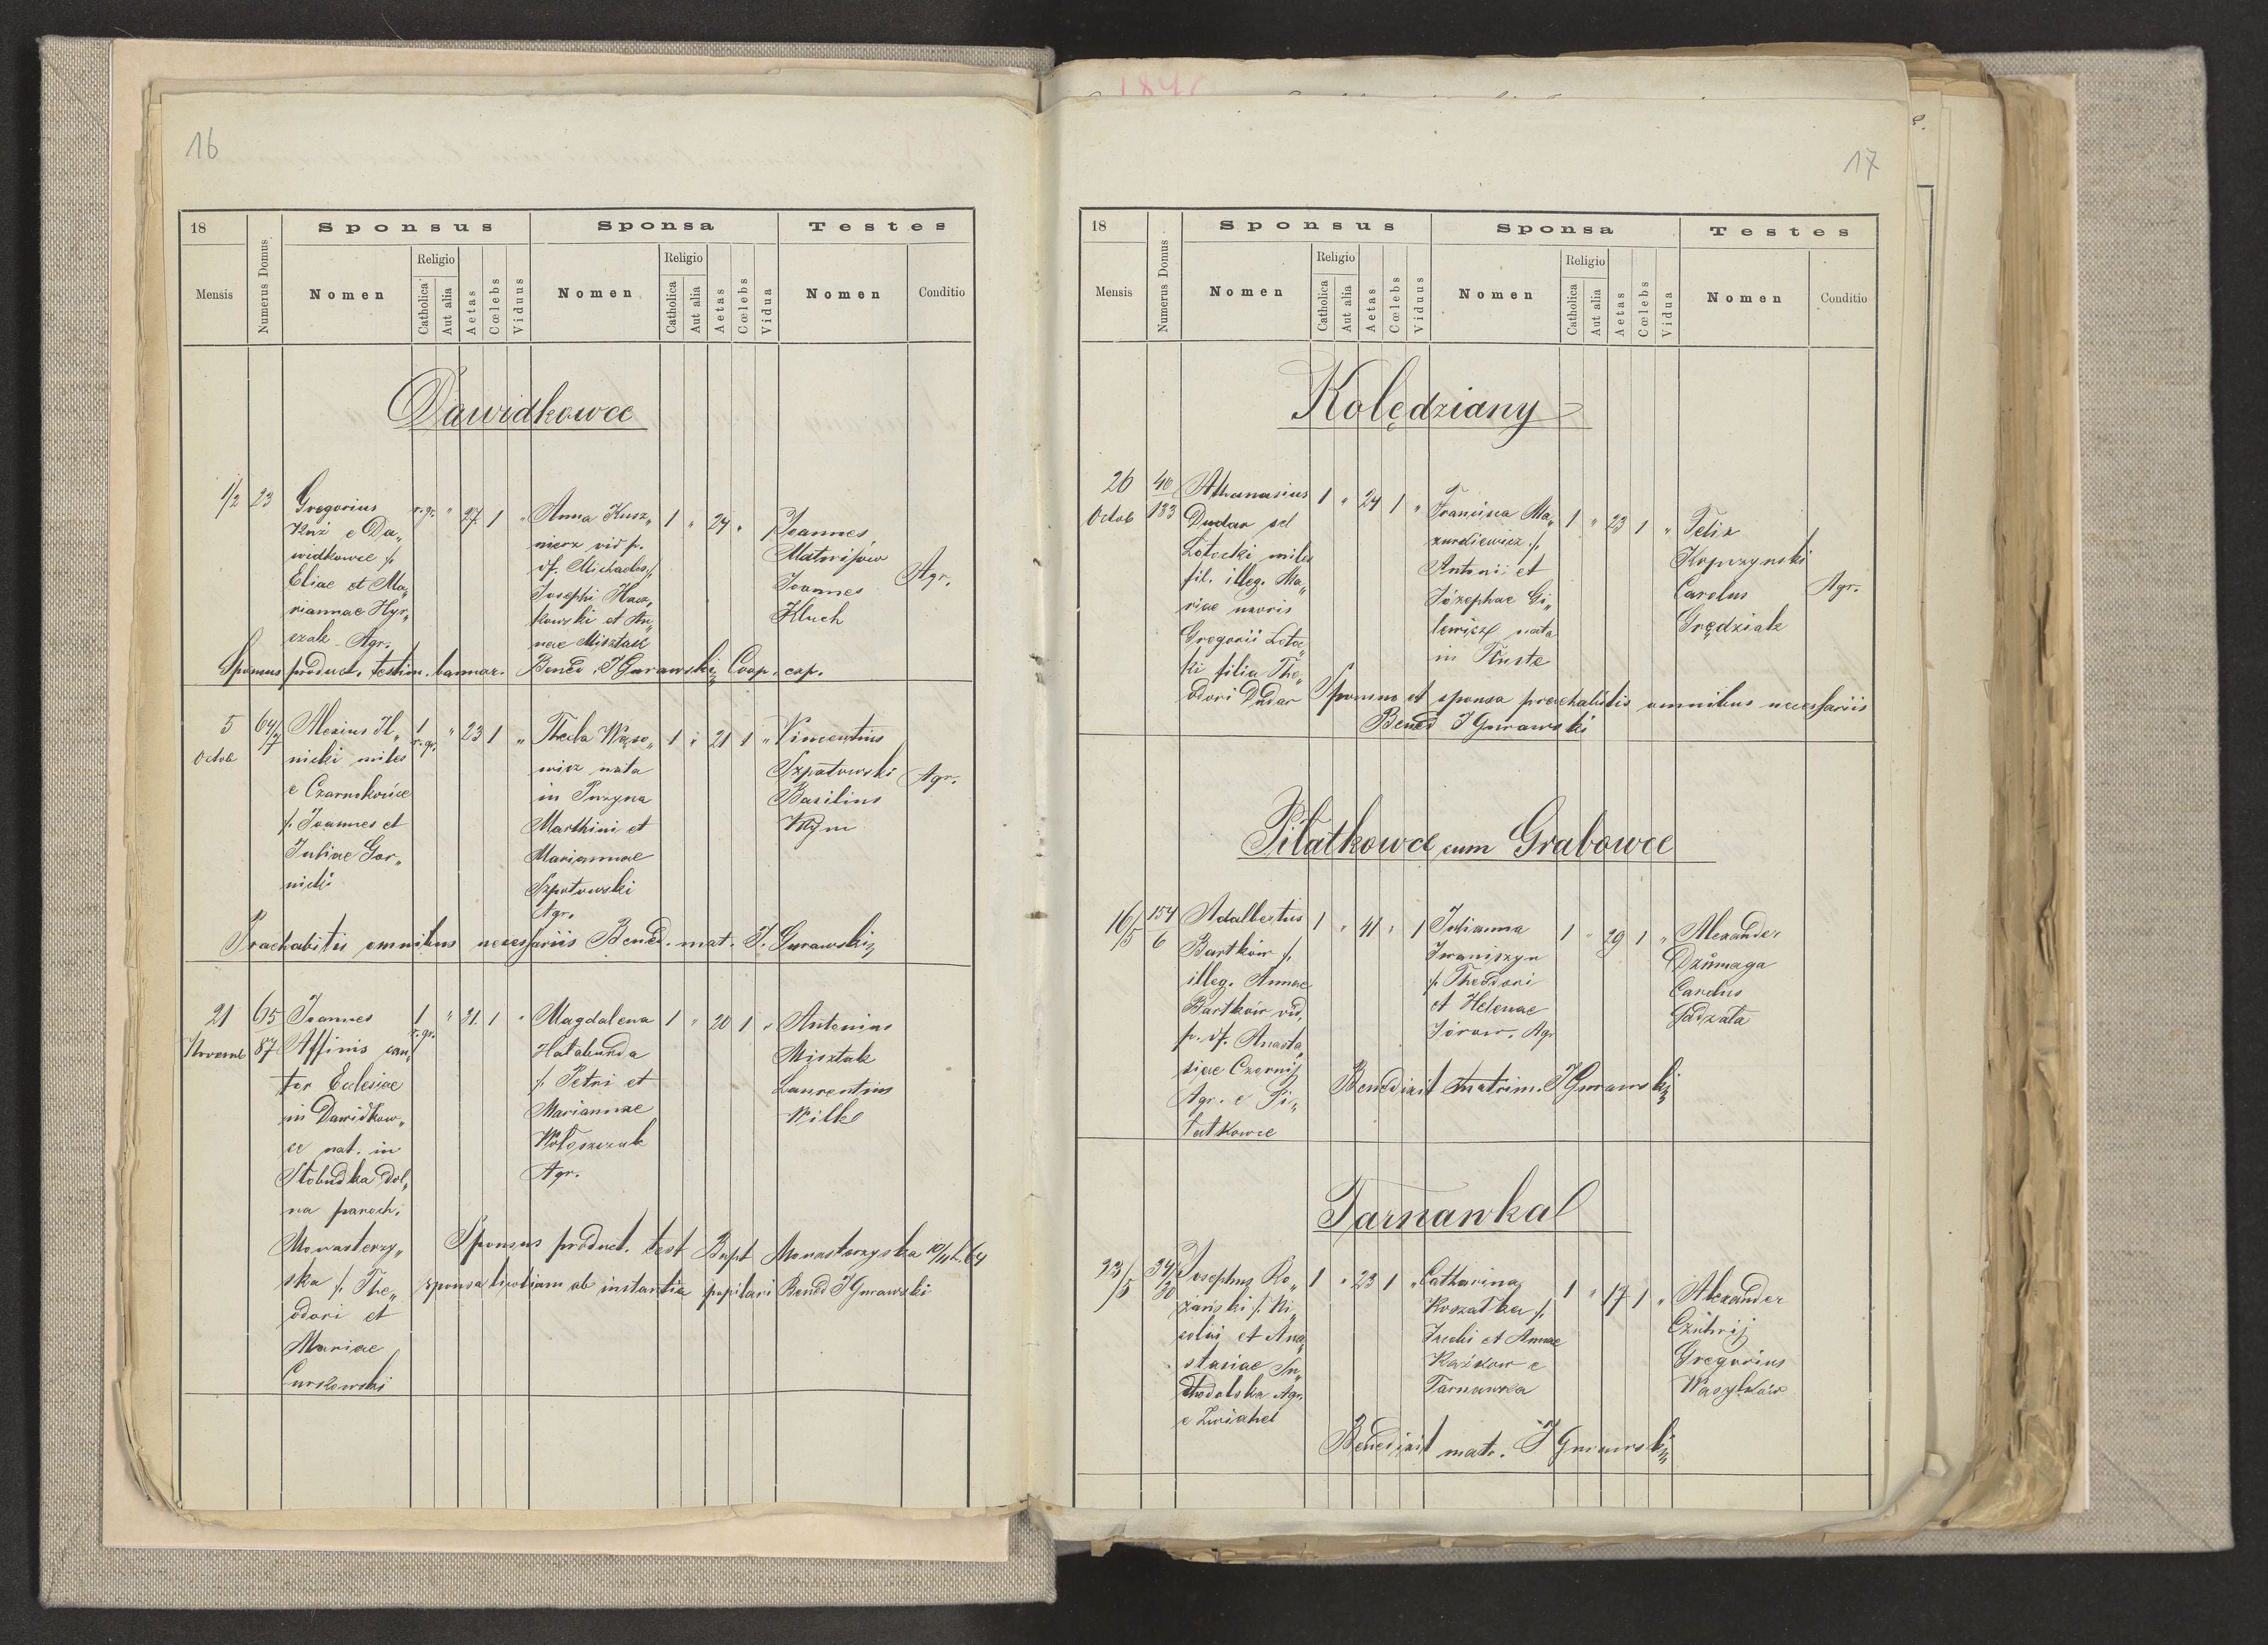 16
18
Mensis
Numerus Domus
Sponsus
Nomen
Religio
Catholica
Aut alia
Aetas
Cœlebs
Viduus
Sponsa
Nomen
Religio
Catholica
Aut alia
Aetas
Cœlebs
Vidua
Testes
Nomen
Conditio
Dawidkowce
1/2 23
Gregorius
Kuź e Da„
widkowce f.
Eliae et Ma„
riannae Hyr„
czak Agr.
r. gr. " 27 1 "
Anna Kusz„
nierz vid p.
def. Michaelis f.
Josephi Hacz„
kowski et An„
nae Misztak
1 " 24 "
Joannes
Matwijów
Joannes
Kluch
Agr.
Sponsus product. testim. bannor. Bened. J Gurawski Coop. exp.
5
Octob
64/7
Alexius Il„
nicki miles
e Czarnokońce
f. Joannes et
Juliae Gor„
nicki
1
r. gr.
" 23 1 "
Thecla Wąso„
wicz nata
in Puzyna
Marthini et
Mariannae
Szpatowski
Agr.
1 " 21 1 "
Vincentius
Szpatowski
Basilius
Kłym
Agr.
Praehabitis omnibus necessariis Bened. mat. J. Gurawski
21
Novemb
65
87
Joannes
Affinis can„
tor Eclesiae
in Dawidkow„
ce nat. in
Słobudka Dol„
na paroch.
Monasterzy„
ska f. The„
odori et
Mariae
Curkowski
1
r. gr.
" 31 1 "
Magdalena
Hałabunda
f. Petri et
Mariannae
Wołoszczuk
Agr.
1 " 20 1 "
Antonius
Misztak
Laurentius
Wilk
Sponsus product. test Bapt Monasterzyska
sponsa ab instantia pupilari Bened J Gurawski
17
18
Mensis
Numerus Domus
Sponsus
Nomen
Religio
Catholica
Aut alia
Aetas
Cœlebs
Viduus
Sponsa
Nomen
Religio
Catholica
Aut alia
Aetas
Cœlebs
Vidua
Testes
Nomen
Conditio
Kolędziany
26
Octob
40
133
Athanasius
Dudar sel
Łotocki miles
fil. illeg. Ma„
riae uxoris
Gregorii Łotoc„
ki filia The„
odori Dudar
1 " 24 1 "
Francisca Ma„
zurkiewicz f.
Antonii et
Józephae Gi„
lewicz nata
in Tłuste
1 " 23 1 "
Felix
Kopczynski
Carolus
Grędziak
Agr.
Sponsus et sponsa praehabitis omnibus necessariis
Bened J Gurawski
Piłatkowce cum Grabowce
16/5
154
6
Adalbertus
Bartków f.
illeg. Annae
Bartków vid.
p. def. Anasta„
siae Czornij
Agr. e Pi„
łatkowce
1 " 41 " 1
Julianna
Iwaniszyn
f. Theodori
et Helenae
Jórow. Agr
1 " 29 1 "
Alexander
Dziimaga
Carolus
Gadzała
Benedixit matrim. J Gurawski
Tarnawka
23/5
34/30
Josephus Ko„
zański f. Ni„
colai et Ana„
stasiae Su„
chodolska Agr.
e Zwiahel
1 " 23 1 "
Catharina
Koszałka f.
et Annae
Kaźkow e
Tarnawka
1 " 17 1 "
Alexander
Czútnij
Gregorius
Wasylków
Benedixit matr. J Gurawski